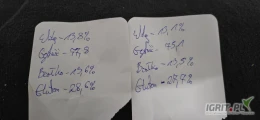 Wilg - 13,8%
Gęstość - 77,8
Białko - 13,6%
Gluten - 28,6%
Wilg - 13,1%
Gęstość - 75,1
Białko - 13,5%
Gluten - 28,7%
IGRIT.PL